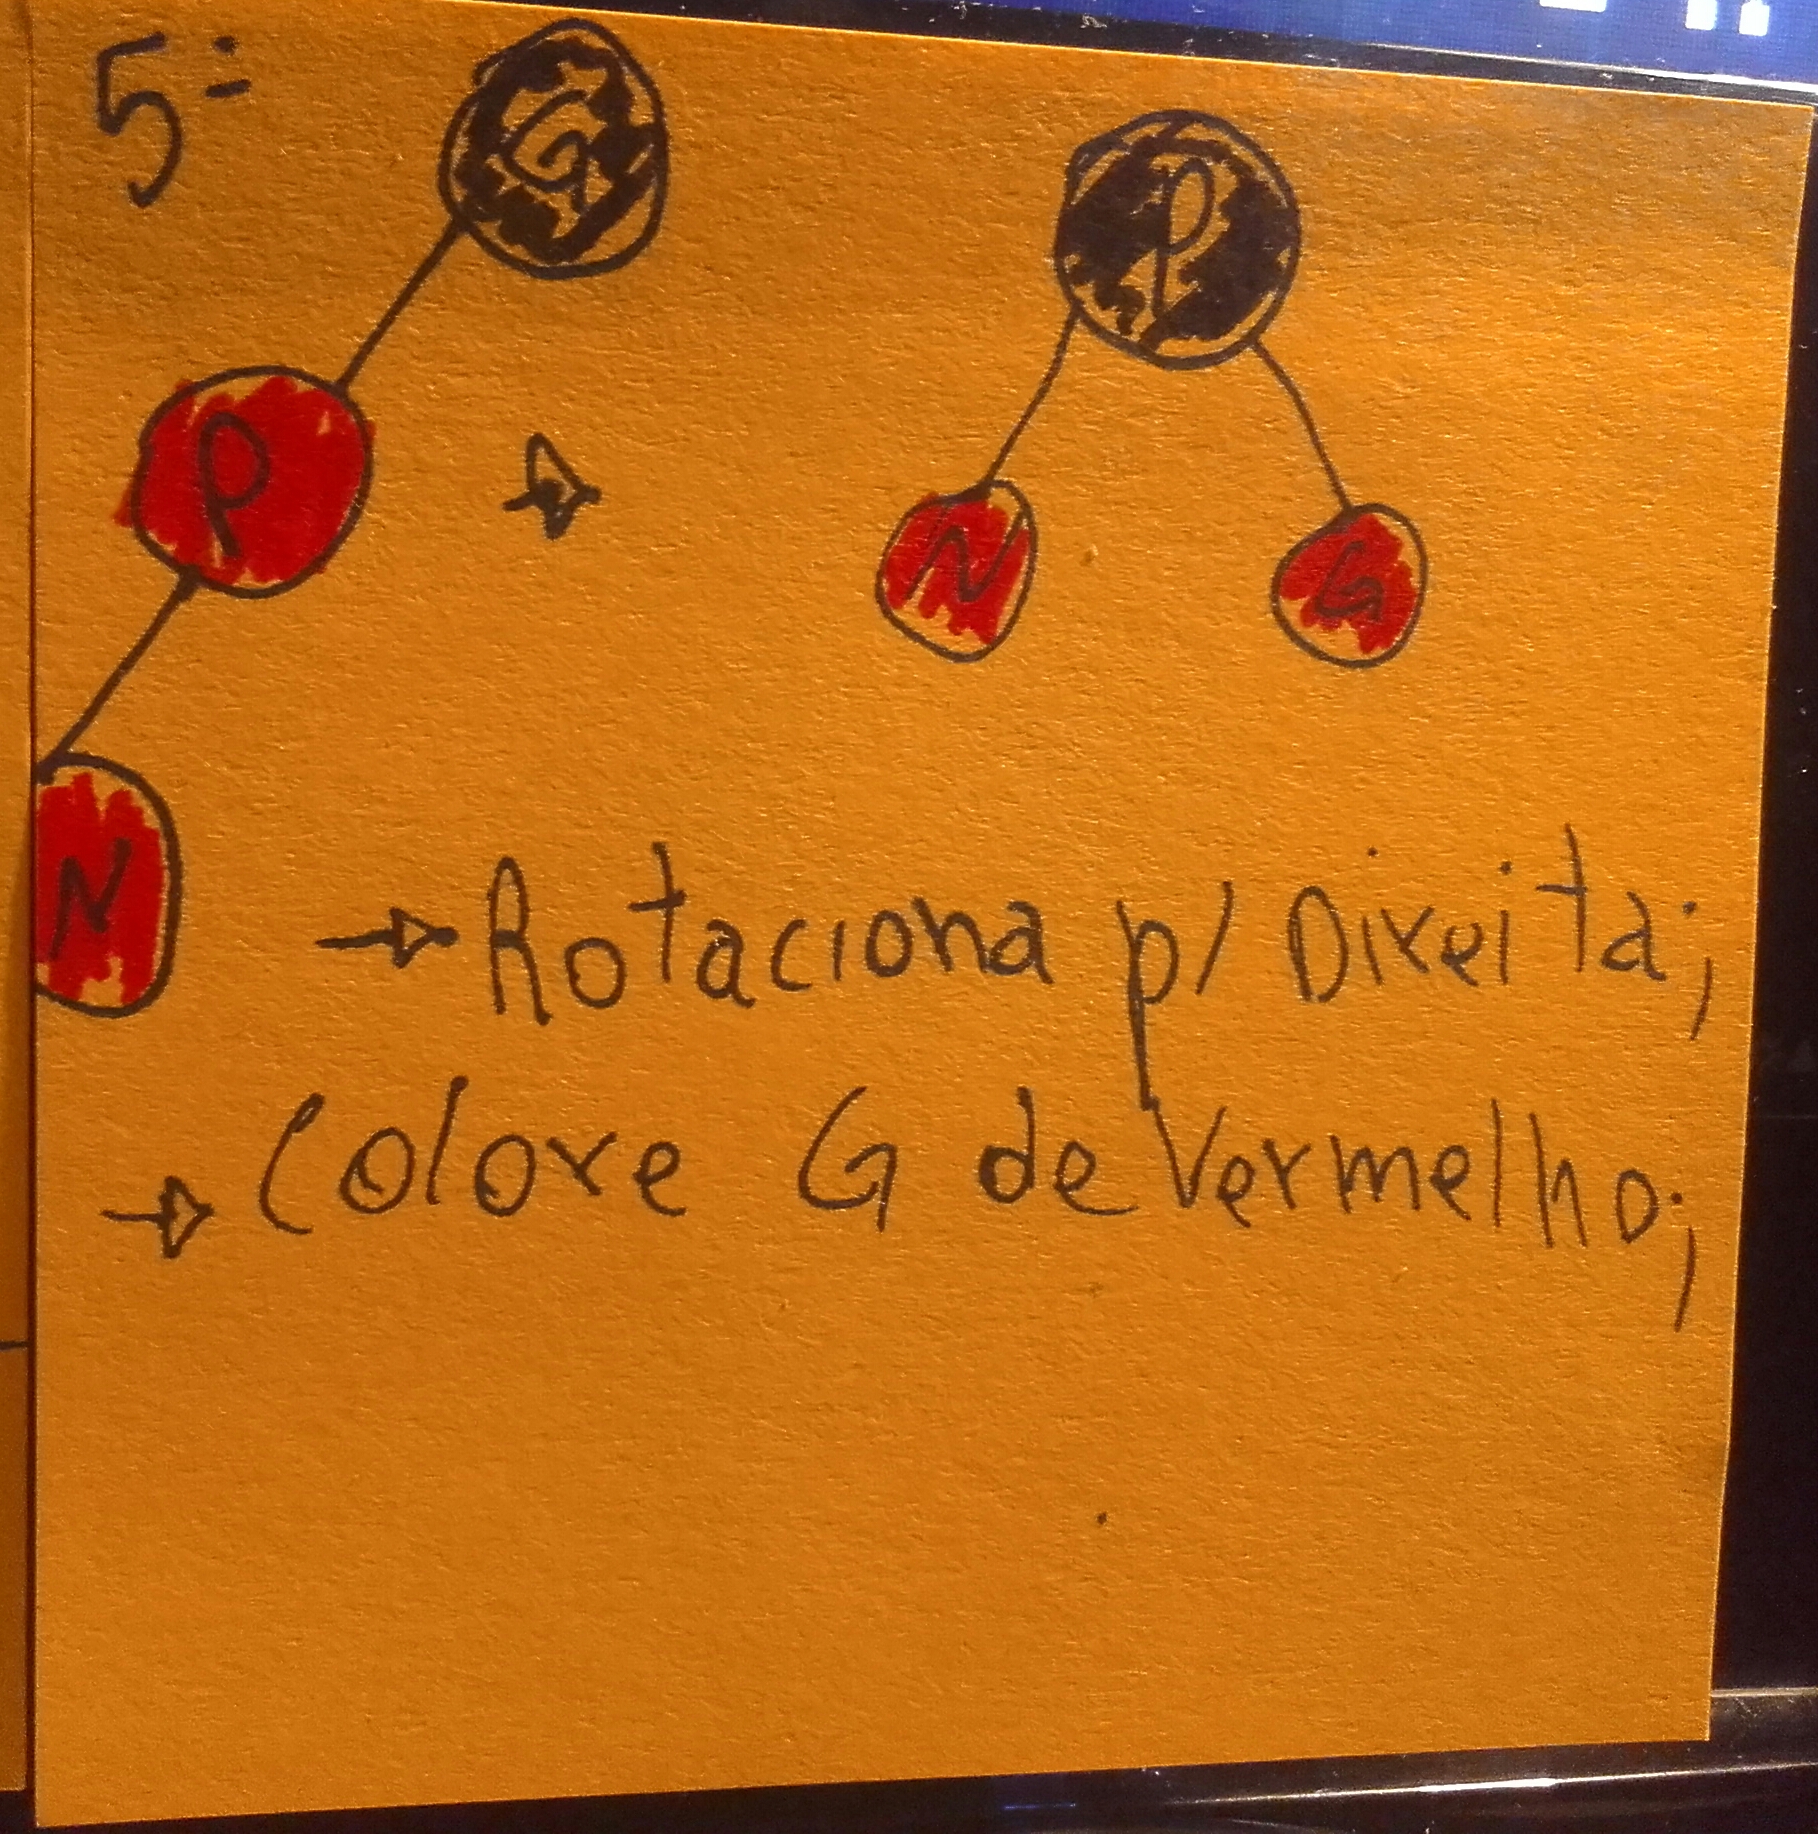 5=
G
P
P
N
G
N
→ Rotaciona p/ Direita;
→ Colore G de Vermelho;